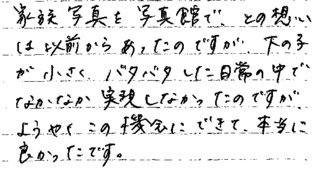 家族写真を写真館で、との想い
は以前からあったのですが、下の子
が小さく、バタバタした日常の中で
なかなか実現しなかったのですが、
ようやくこの機会にできて、本当に
良かったです。